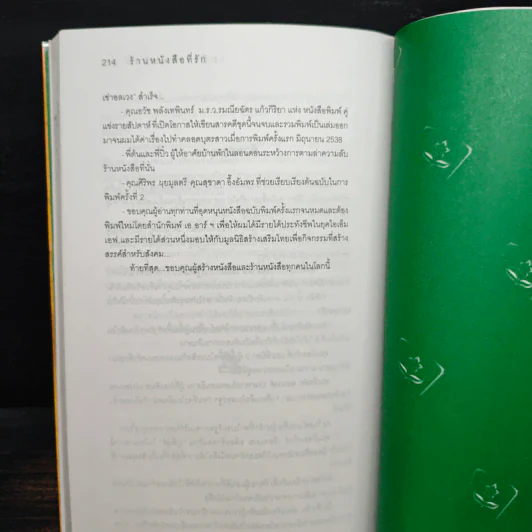 214 ร้านหนังสือที่รัก
เช่าอลเวง" สำเร็จ
- คุณธวัช พลังเทพินทร์ ม.ร.ว.รมณียฉัตร แก้วกิริยา แห่ง หนังสือพิมพ์ คู่
แข่งรายสัปดาห์ ที่เปิดโอกาสให้เขียนสารคดีชุดนี้จนจบและรวมพิมพ์เป็นเล่มออก
มาจนผมได้ค่าเรื่องไปทำคลอดบุตรสาวเมื่อการพิมพ์ครั้งแรก มิถุนายน 2538
- พี่ต้นและพี่ปิ๋ว ผู้ให้อาศัยบ้านพักในลอนดอนระหว่างการตามล่าความลับ
ร้านหนังสือที่นั่น
- คุณศิริพร ผุยมูลตรี คุณสุชาดา อึ้งอัมพร ที่ช่วยเรียบเรียงต้นฉบับในการ
พิมพ์ครั้งที่ 2
- ขอบคุณผู้อ่านทุกท่านที่อุดหนุนหนังสือฉบับพิมพ์ครั้งแรกจนหมดและต้อง
พิมพ์ใหม่โดยสำนักพิมพ์ เอ อาร์ ฯ เพื่อให้ผมได้มีรายได้ประทังชีพในยุคไอเอ็ม
เอฟ และมีรายได้ส่วนหนึ่งมอบให้กับมูลนิธิสร้างเสริมไทยเพื่อกิจกรรมที่สร้าง
สรรค์สำหรับสังคม...
ท้ายที่สุด...ขอบคุณผู้สร้างหนังสือและร้านหนังสือทุกคนในโลกนี้